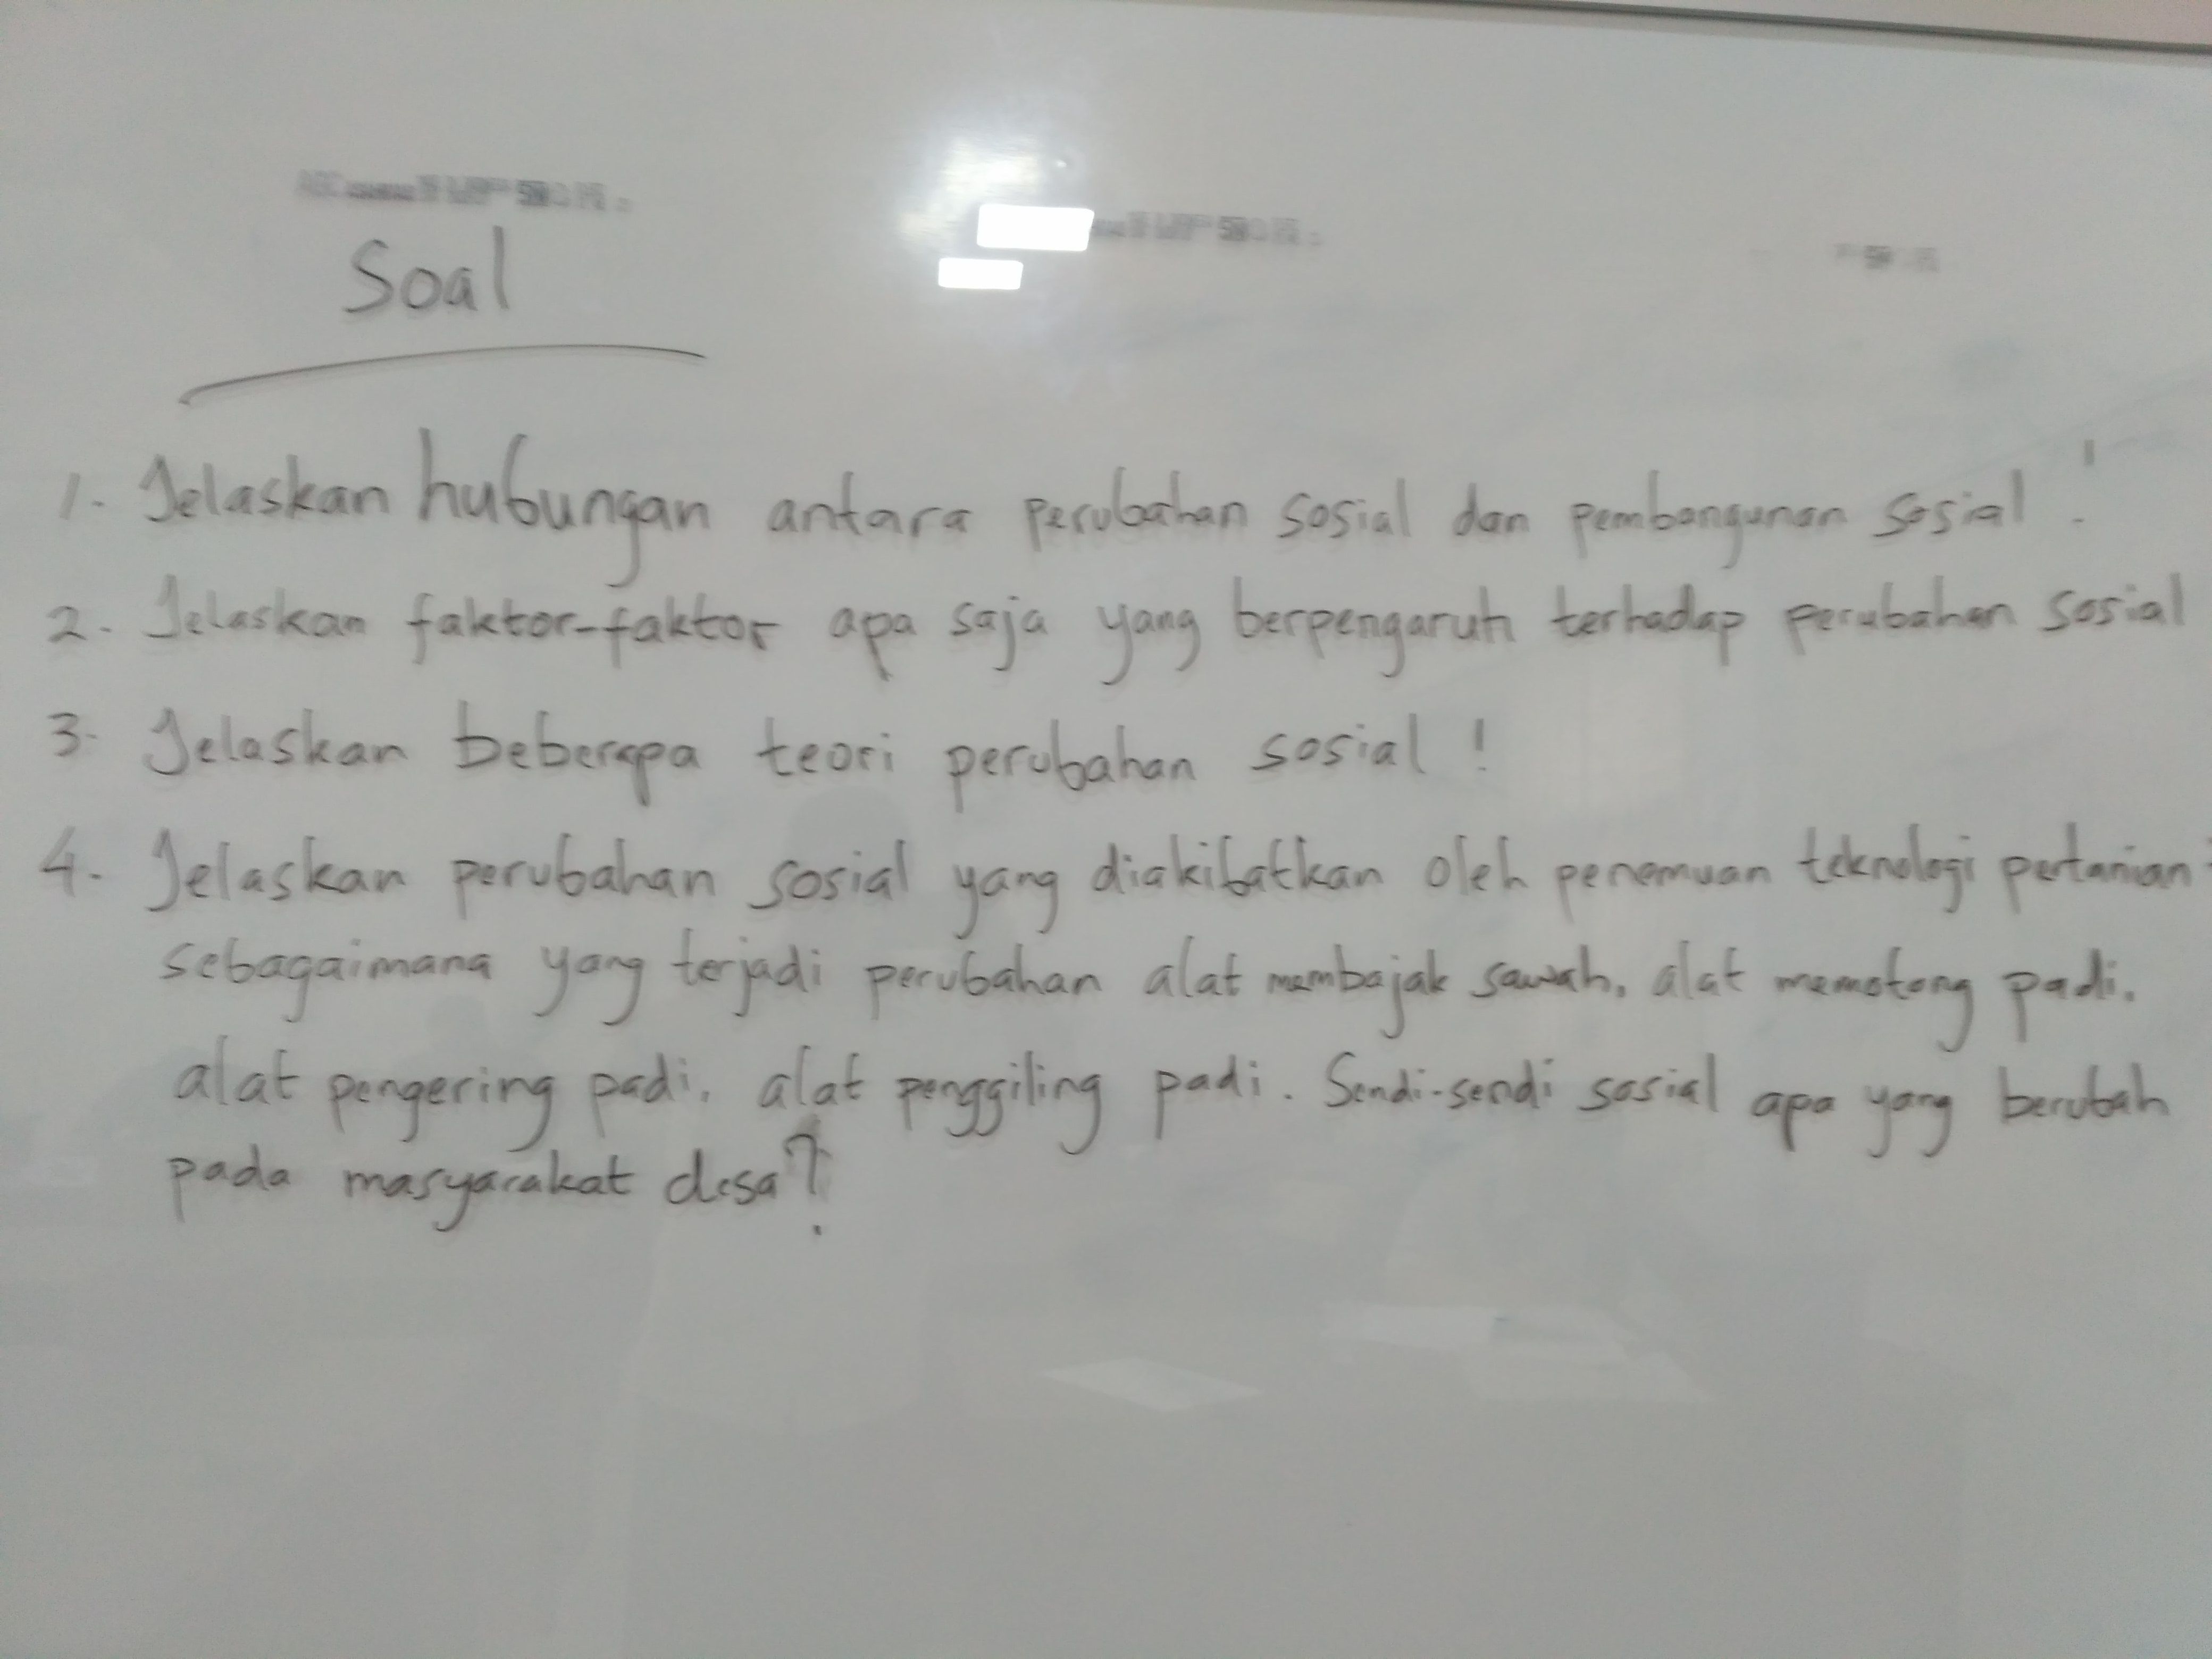 Soal
1. Jelaskan hubungan antara perubahan sosial dan pembangunan sosial !
2. Jelaskan faktor-faktor apa saja yang berpengaruh terhadap perubahan sosial
3. Jelaskan beberapa teori perubahan sosial !
4. Jelaskan perubahan sosial yang diakibatkan oleh penemuan teknologi pertanian
sebagaimana yang terjadi perubahan alat membajak sawah, alat memotong padi,
alat pengering padi, alat penggiling padi. Sendi-sendi sosial apa yang berubah
pada masyarakat desa?